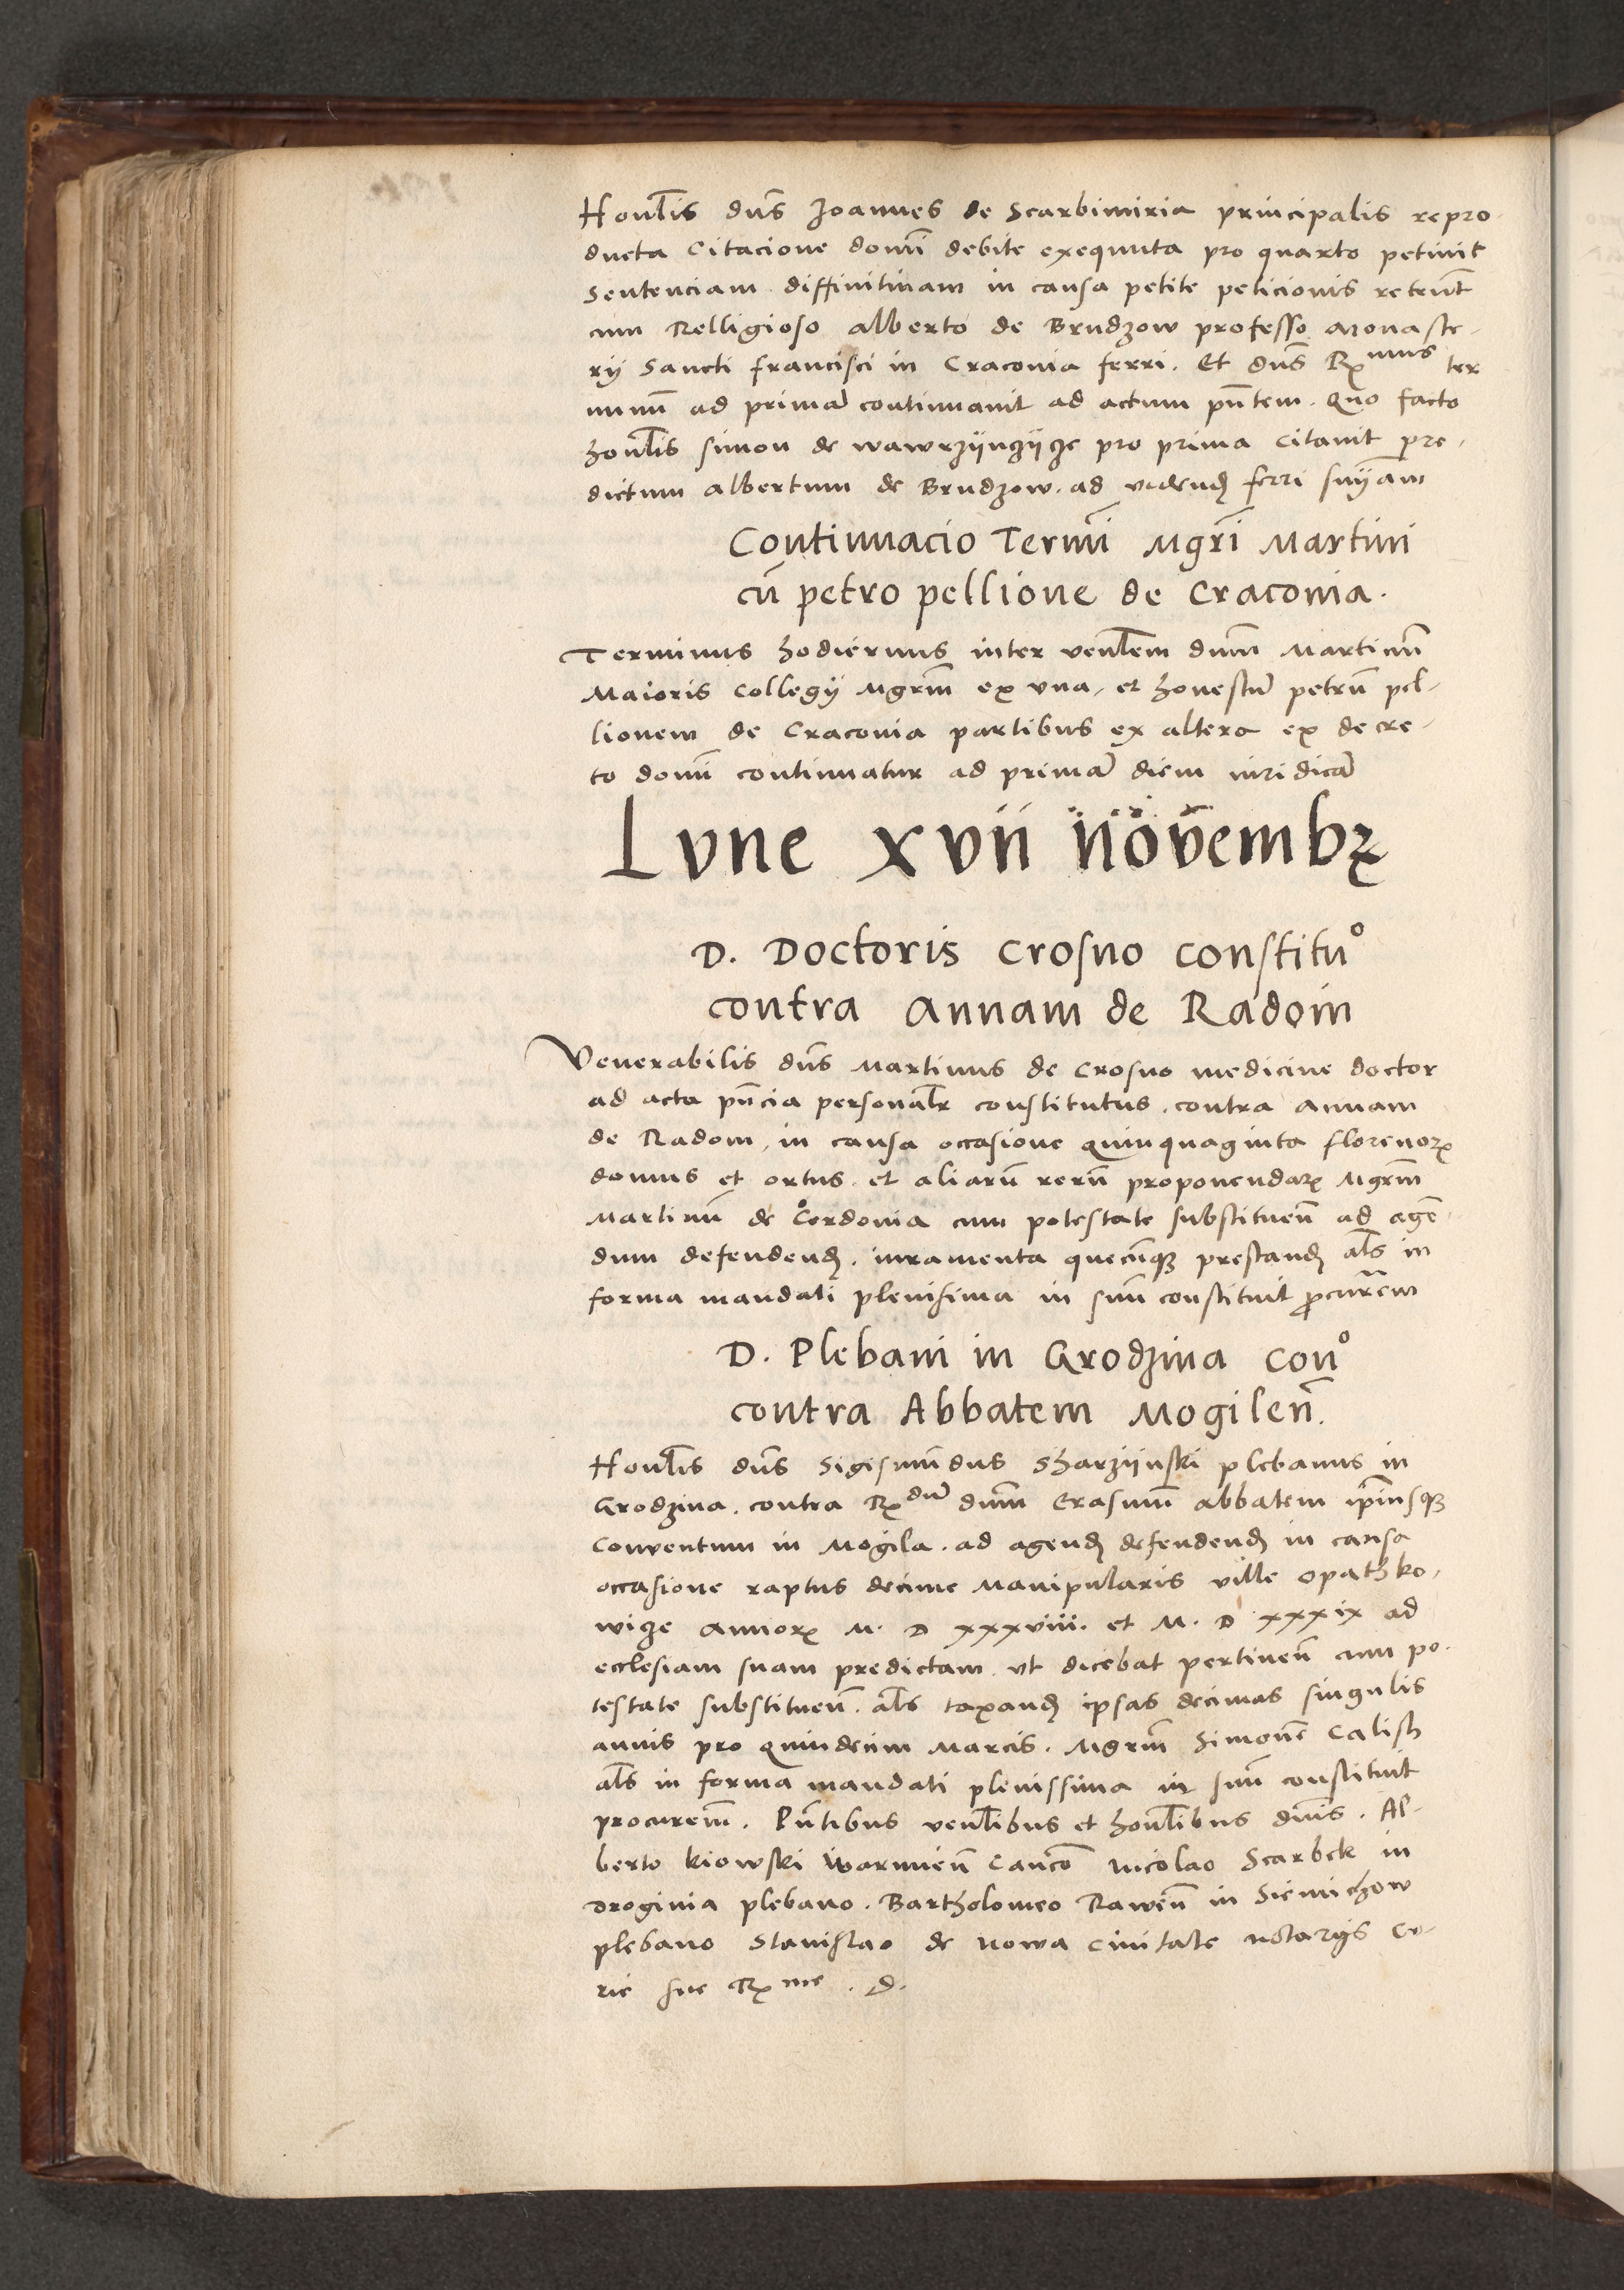 Honl̃is dñs Joannes de Scarbimiria principalis repro-
ducta Citacione domĩ debite exequuta pro quarto petiuit
Sentenciam diffinitiuam in causa petite peticionis
cum Relligioso alberto de Brudzow professo Monaste-
rij Sancti francisci in Craconia ferri. Et dñs Rmus ter
minũ ad primã continuauit ad actum pñtem. Quo facto
honl̃is simon de wawrzijnczijcze pro prima citauit pre-
dictum albertum de Brudzow. ad videnđ ferri snỹam
Continuacio Termĩ Mgr̃i Martini
cũ petro pellione de Craconia.
Terminus hodiernus inter venl̃em dnm̃ Martinũ
Maioris Collegij Mgrm̃ ex vna, et honestũ petrũ pel-
lionem de Craconia partibus ex altera ex decre-
to domĩ continuatur ad primã diem iuridicã
Lvne xvii novembꝝ
D. Doctoris Crosno Constituº
contra Annam de Radom
Venerabilis dñs Martinus de Crosno medicine doctor
ad acta pñcia personalr̃ constitutus. contra annam
de Radom, in causa occasione quinquaginta florenoꝝ
domus et ortus. et aliarũ rerũ proponendaꝝ Mgrm̃
Martinũ de Cerdonia cum potestate substituen̄ ad agẽ-
dum defendenđ. iuramenta quecũqꝫ prestanđ al̃s in
forma mandati plenisima in suũ constituit ꝓcur̃em
D. Plebani in Grodzina Conº
contra Abbatem Mogileñ.
Honl̃is dñs Sigismũdus Sharzijnski plebanus in
Grodzina. contra Rdũ dnm̃ Erasmũ abbatem ip̃iusqꝫ
Conventum in Mogila. ad agenđ defendenđ in causa
occasione raptus decime Manipularis ville opathko-
wicze annoꝝ M. D xxxviii. et M. D xxxix ad
ecclesiam suam predictam. vt dicebat pertinen̄ cum po-
testate substituen̄. al̃s taxanđ ipsas decimas singulis
annis pro quindecim Marcis. Mgrm̃ Simonẽ Calish
al̃s in forma mandati plenissima in suũ constituit
procurem̃. Pñtibus venl̃ibus et honl̃ibus dnĩs. Al-
berto kiowski warmieñ Cancõ nicolao Scarbek in
droginia plebano. Bartholomeo Raweñ in Siemichow
plebano Stanislao de nowa ciuitate notarijs Cu-
rie sue Rme. D.